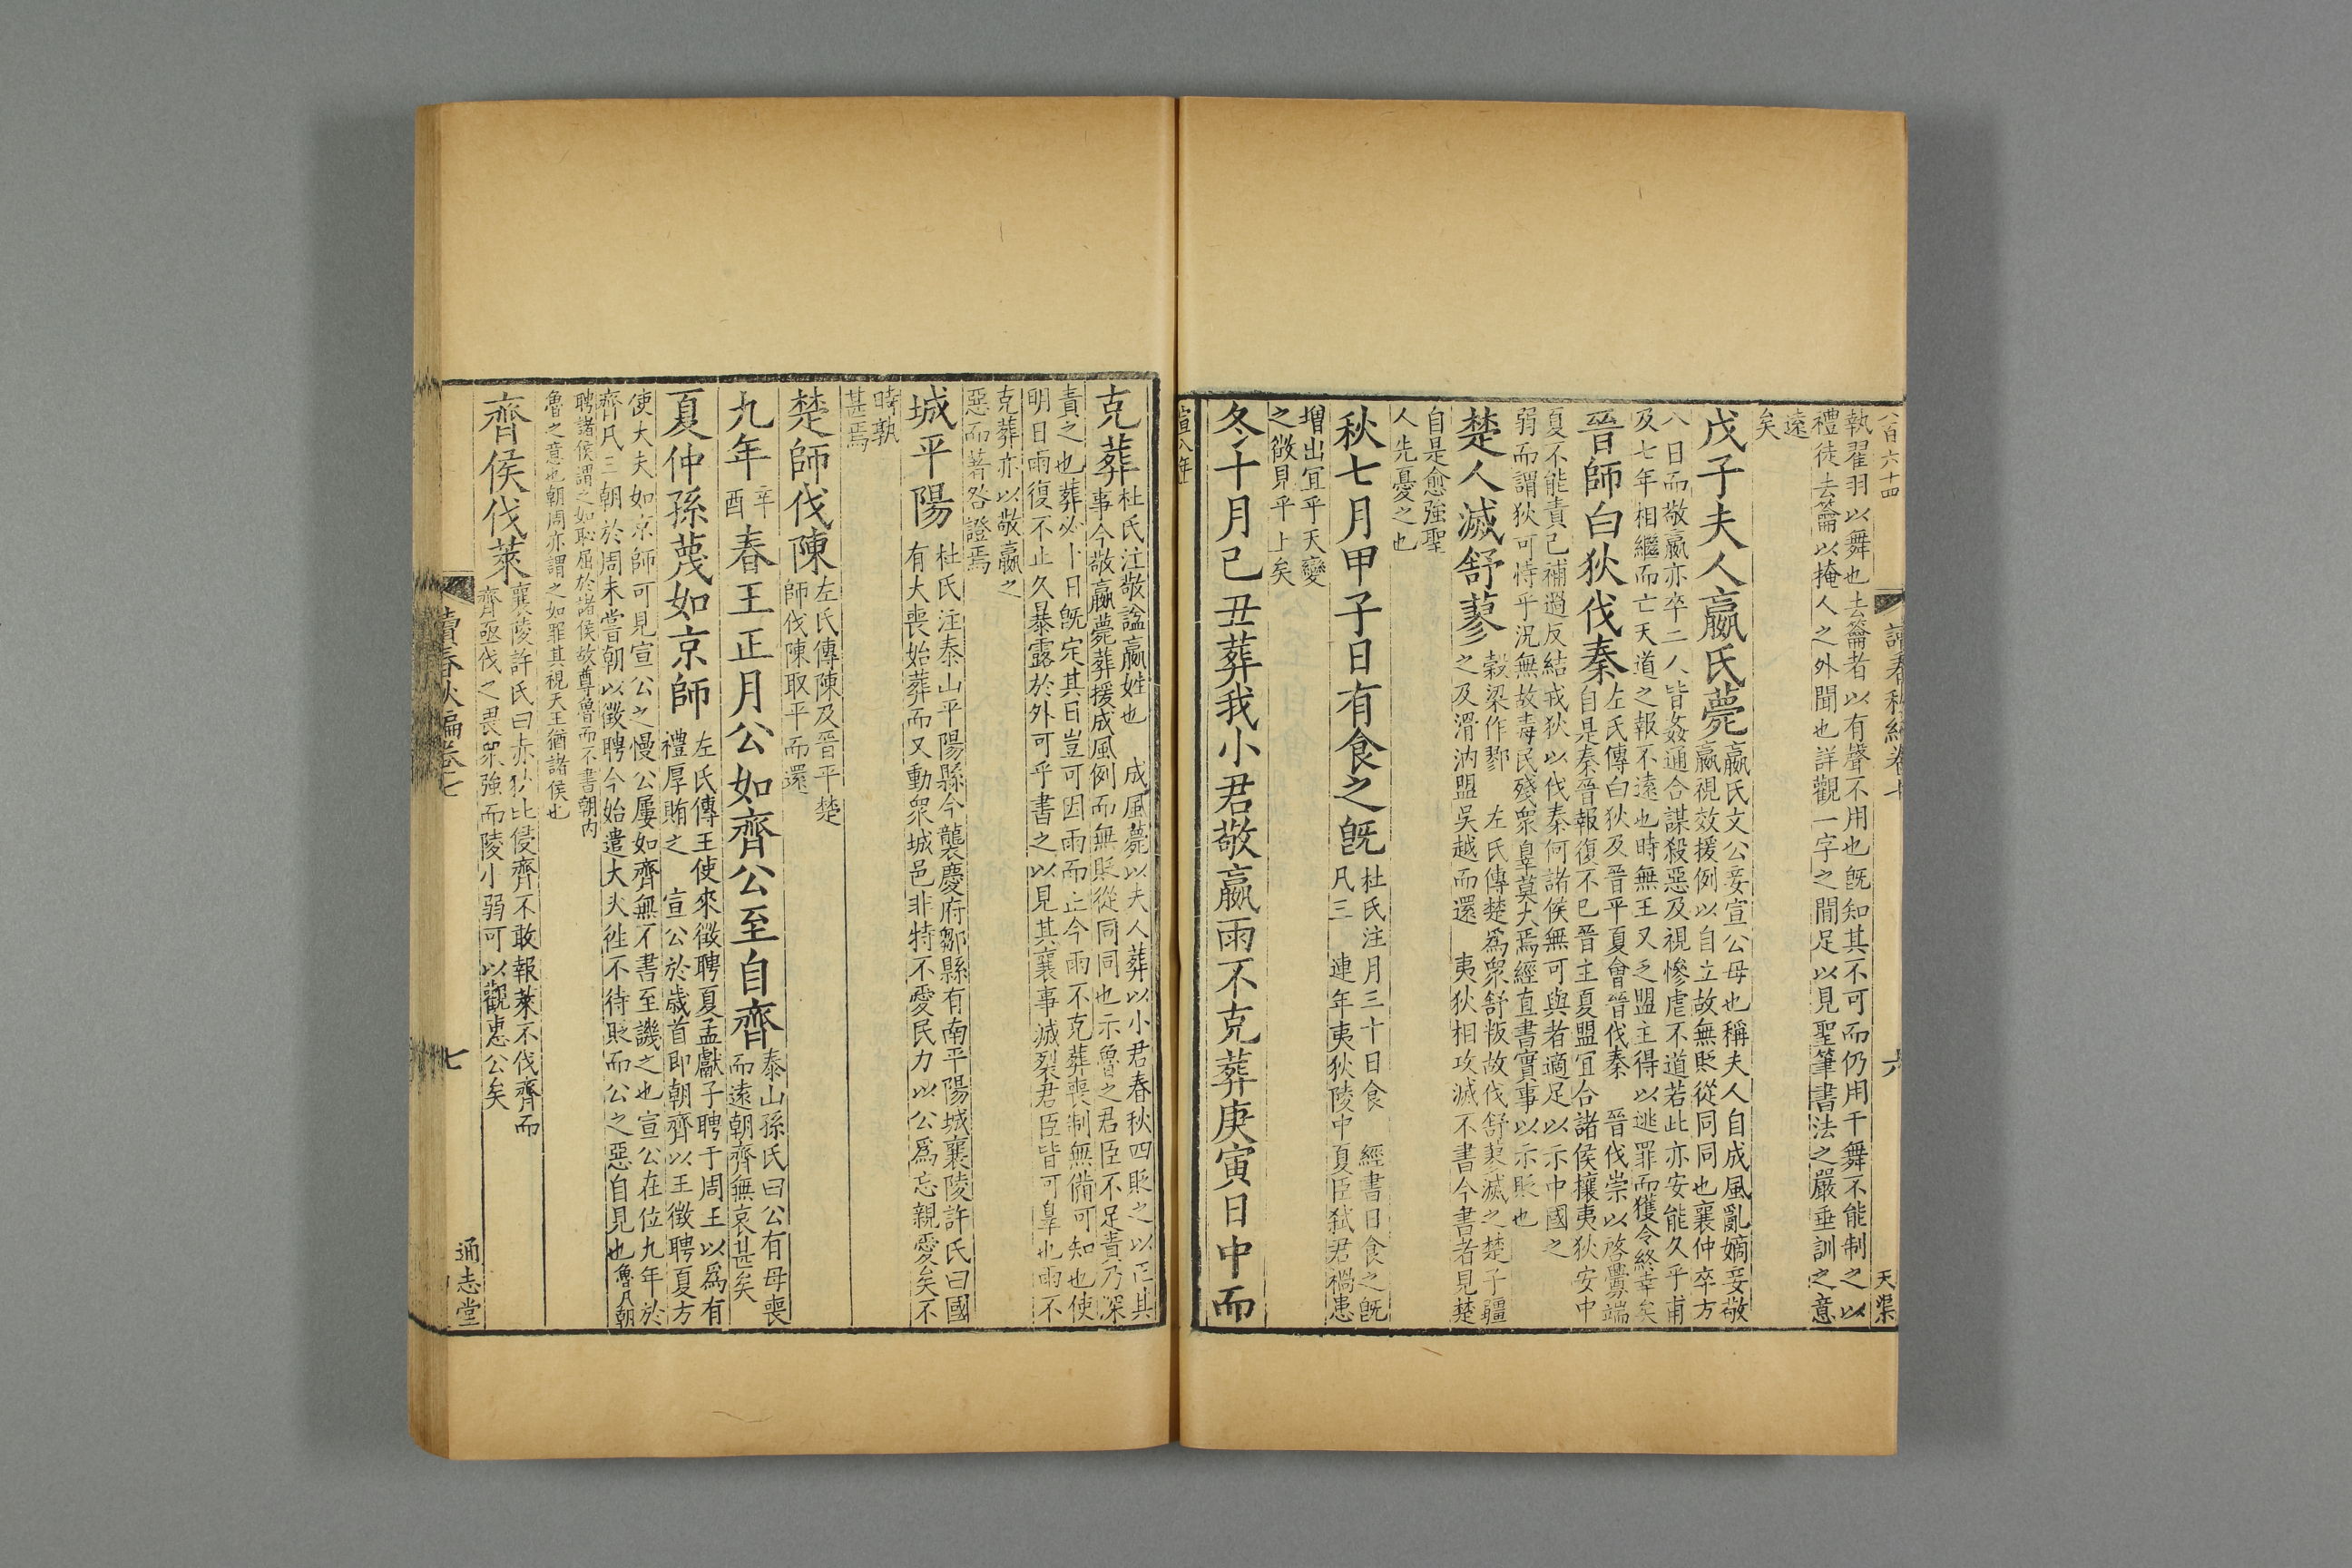 八百六十四
讀春秋編卷七
六
天渠
執翟羽以舞也去籥者以有聲不用也旣知其不可而仍用干舞不能制之以
禮徒去籥以掩人之外聞也詳觀一字之間足以見聖筆書法之嚴垂訓之意
遠
矣
戊子夫人嬴氏薨
嬴氏文公妾宣公母也稱夫人自成風亂嫡妾敬
嬴視效援例以自立故無貶從同同也襄仲卒方
八日而敬嬴亦卒二人皆姦通合謀殺惡及視慘虐不道若此亦安能久乎甫
及七年相繼而亡天道之報不遠也時無王又乏盟主得以逃罪而獲令終幸矣
晉師白狄伐秦
左氏傳白狄及晉平夏會晉伐秦 晉伐崇以啓釁端
自是秦晉報復不已晉主夏盟宜合諸侯攘夷狄安中
夏不能責己補過反結戎狄以伐秦何諸侯無可與者適足以示中國之
弱而謂狄可恃乎況無故毒民殘衆辠莫大焉經直書實事以示貶也
楚人滅舒蓼
穀梁作鄝 左氏傳楚爲衆舒叛故伐舒蓼滅之楚子疆
之及滑汭盟吳越而還 夷狄相攻滅不書今書者見楚
自是愈強聖
人先憂之也
秋七月甲子日有食之旣
杜氏注月三十日食 經書日食之旣
凡三 連年夷狄陵中夏臣弑君禍患
增出宜乎天變
之徵見乎上矣
冬十月己丑葬我小君敬嬴雨不克葬庚寅日中而
宣八年
克葬
杜氏注敬諡嬴姓也 成風薨以夫人葬以小君春秋四貶之以正其
事今敬嬴薨葬援成風例而無貶從同同也示魯之君臣不足責乃深
責之也葬必卜日旣定其日豈可因雨而止今雨不克葬喪制無備可知也使
明日雨復不止久暴露於外可乎書之以見其襄事滅裂君臣皆可辠也雨不
克葬亦以敬嬴之
惡而著咎證焉
城平陽
杜氏注泰山平陽縣今襲慶府鄒縣有南平陽城襄陵許氏曰國
有大喪始葬而又動衆城邑非特不愛民力以公爲忘親愛矣不
時孰
甚焉
楚師伐陳
左氏傳陳及晉平楚
師伐陳取平而還
九年
辛
酉
春王正月公如齊公至自齊
泰山孫氏曰公有母喪
而遠朝齊無哀甚矣
夏仲孫蔑如京師
左氏傳王使來徵聘夏孟獻子聘于周王以爲有
禮厚賄之 宣公於歲首即朝齊以王徵聘夏方
使大夫如京師可見宣公之慢公屢如齊無不書至譏之也宣公在位九年於
齊凡三朝於周未嘗朝以徵聘今始遣大夫往不待貶而公之惡自見也魯凡朝
聘諸侯謂之如恥屈於諸侯故尊魯而不書朝內
魯之意也朝周亦謂之如罪其視天王猶諸侯也
齊侯伐萊
襄陵許氏曰赤狄比侵齊不敢報萊不伐齊而
齊亟伐之畏衆強而陵小弱可以觀惠公矣
讀春秋編卷七
七
通志堂